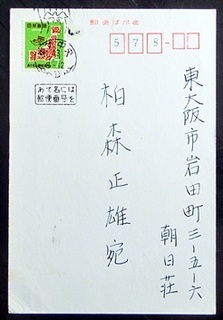 郵便はがき
578-
東大阪市岩田町三-五-六
朝日荘
柏森正雄宛
あて名には
郵便番号を